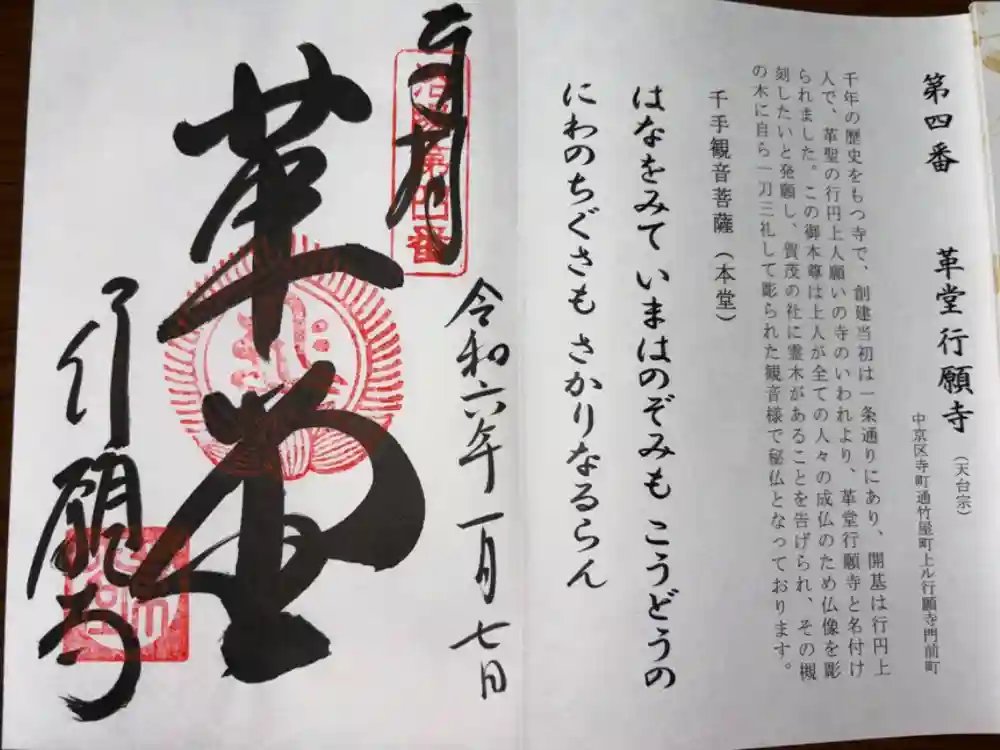 第四番 革堂行願寺(天台宗)
中京区寺町通竹屋町上ル行願寺門前町
千年の歴史をもつ寺で、創建当初は一条通りにあり、開基は行円上
人で、革聖の行円上人願いの寺のいわれより、革堂行願寺と名付け
られました。この御本尊は上人が全ての人々の成仏のため仏像を彫
刻したいと発願し、賀茂の社に霊木があることを告げられ、その槻
の木に自ら一刀三礼して彫られた観音様で秘仏となっております。
千手観音菩薩(本堂)
はなをみて いまはのぞみも こうどうの
にわのちぐさも さかりなるらん
第四番
令和六年一月七日
革堂
行願寺